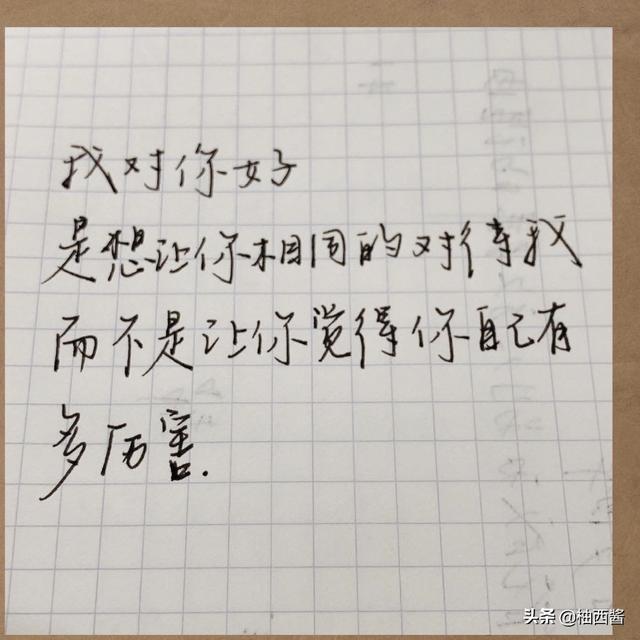 我对你好
是想让你相同的对待我
而不是让你觉得你自己有
多厉害.
头条 @柚西酱